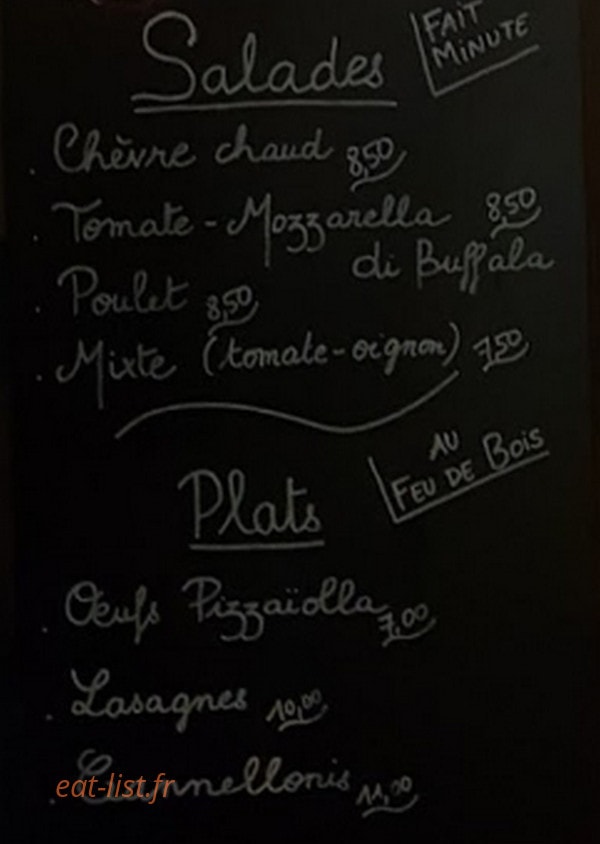 Salades
FAIT
MINUTE
. Chèvre chaud 8,50
. Tomate - Mozzarella 8,50
di Buffala
. Poulet 8,50
. Mixte (tomate-oignon) 7,50
Plats
AU
FEU DE BOIS
. Œufs Pizzaïolla 7,00
. Lasagnes 10,00
. Cannellonis 11,00
eat-list.fr